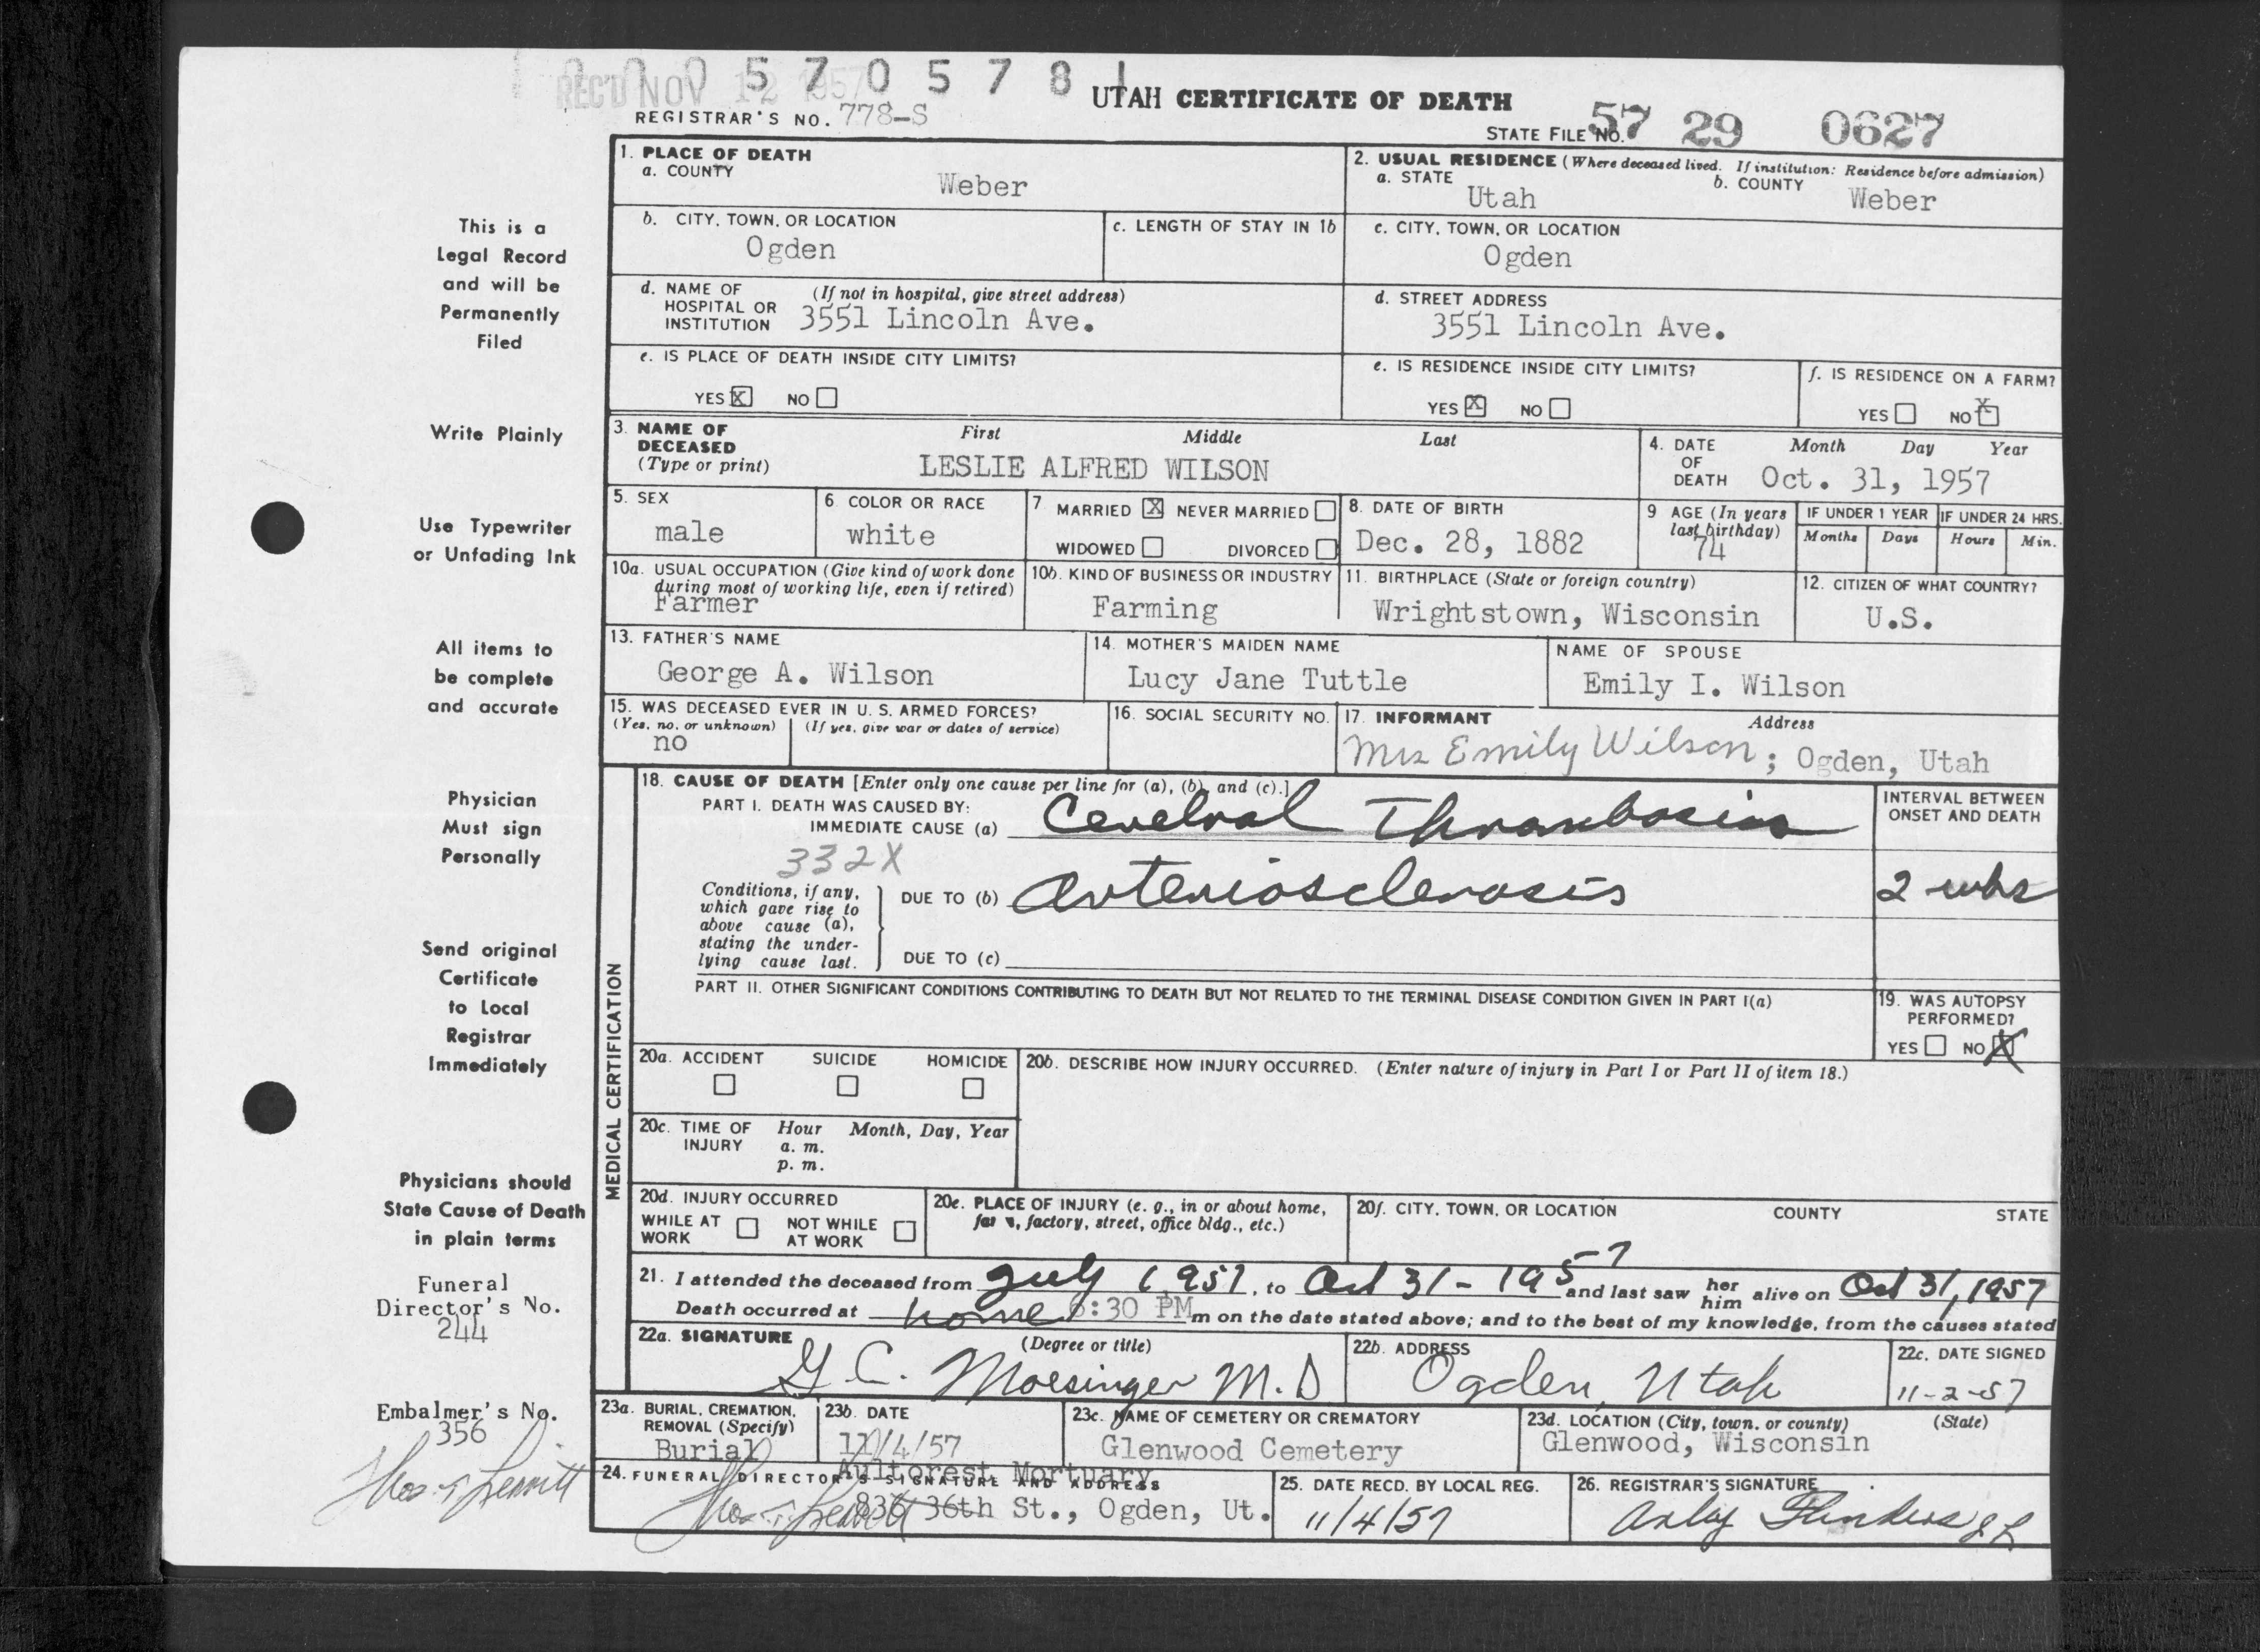 0 0 0 5 7 0 5 7 8 1
REC'D NOV 12 1957
UTAH CERTIFICATE OF DEATH
REGISTRAR'S NO. 778-S
STATE FILE NO. 57 29 0627
This is a
Legal Record
and will be
Permanently
Filed
Write Plainly
Use Typewriter
or Unfading Ink
All items to
be complete
and accurate
Physician
Must sign
Personally
Send original
Certificate
to Local
Registrar
Immediately
Physicians should
State Cause of Death
in plain terms
Funeral
Director's No.
244
Embalmer's No.
356
1. PLACE OF DEATH
a. COUNTY
Weber
2. USUAL RESIDENCE (Where deceased lived. If institution: Residence before admission)
a. STATE
Utah
b. COUNTY
Weber
b. CITY, TOWN, OR LOCATION
Ogden
c. LENGTH OF STAY IN 1b
c. CITY, TOWN, OR LOCATION
Ogden
d. NAME OF HOSPITAL OR INSTITUTION
(If not in hospital, give street address)
3551 Lincoln Ave.
d. STREET ADDRESS
3551 Lincoln Ave.
e. IS PLACE OF DEATH INSIDE CITY LIMITS?
YES X NO
e. IS RESIDENCE INSIDE CITY LIMITS?
YES X NO
f. IS RESIDENCE ON A FARM?
YES NO X
3. NAME OF DECEASED
(Type or print)
First Middle Last
LESLIE ALFRED WILSON
4. DATE OF DEATH
Month Day Year
Oct. 31, 1957
5. SEX
male
6 COLOR OR RACE
white
7 MARRIED X NEVER MARRIED
WIDOWED DIVORCED
8. DATE OF BIRTH
Dec. 28, 1882
9 AGE (In years last birthday)
74
IF UNDER 1 YEAR
Months Days
IF UNDER 24 HRS.
Hours Min.
10a. USUAL OCCUPATION (Give kind of work done during most of working life, even if retired)
Farmer
10b. KIND OF BUSINESS OR INDUSTRY
Farming
11. BIRTHPLACE (State or foreign country)
Wrightstown, Wisconsin
12. CITIZEN OF WHAT COUNTRY?
U.S.
13. FATHER'S NAME
George A. Wilson
14. MOTHER'S MAIDEN NAME
Lucy Jane Tuttle
NAME OF SPOUSE
Emily I. Wilson
15. WAS DECEASED EVER IN U. S. ARMED FORCES?
(Yes, no, or unknown) (If yes, give war or dates of service)
no
16. SOCIAL SECURITY NO.
17. INFORMANT Address
Mrs Emily Wilson; Ogden, Utah
MEDICAL CERTIFICATION
18. CAUSE OF DEATH [Enter only one cause per line for (a), (b), and (c).]
PART I. DEATH WAS CAUSED BY:
IMMEDIATE CAUSE (a) Cerebral Thrombosis
332X
Conditions, if any, which gave rise to above cause (a), stating the underlying cause last.
DUE TO (b) Arteriosclerosis
DUE TO (c)
INTERVAL BETWEEN ONSET AND DEATH
2 wks
PART II. OTHER SIGNIFICANT CONDITIONS CONTRIBUTING TO DEATH BUT NOT RELATED TO THE TERMINAL DISEASE CONDITION GIVEN IN PART I(a)
19. WAS AUTOPSY PERFORMED?
YES NO X
20a. ACCIDENT SUICIDE HOMICIDE
20b. DESCRIBE HOW INJURY OCCURRED. (Enter nature of injury in Part I or Part II of item 18.)
20c. TIME OF INJURY
Hour Month, Day, Year
a. m.
p. m.
20d. INJURY OCCURRED
WHILE AT WORK NOT WHILE AT WORK
20e. PLACE OF INJURY (e. g., in or about home, farm, factory, street, office bldg., etc.)
20f. CITY, TOWN, OR LOCATION COUNTY STATE
21. I attended the deceased from July 1957, to Oct 31 - 1957 and last saw her him alive on Oct 31, 1957
Death occurred at home 6:30 PM m on the date stated above; and to the best of my knowledge, from the causes stated
22a. SIGNATURE (Degree or title)
G. C. Moesinger M.D
22b. ADDRESS
Ogden, Utah
22c. DATE SIGNED
11-2-57
23a. BURIAL, CREMATION, REMOVAL (Specify)
Burial
23b. DATE
11/4/57
23c. NAME OF CEMETERY OR CREMATORY
Glenwood Cemetery
23d. LOCATION (City, town, or county) (State)
Glenwood, Wisconsin
24. FUNERAL DIRECTOR'S SIGNATURE AND ADDRESS
Aultorest Mortuary
836 36th St., Ogden, Ut.
25. DATE RECD. BY LOCAL REG.
11/4/57
26. REGISTRAR'S SIGNATURE
Flinders